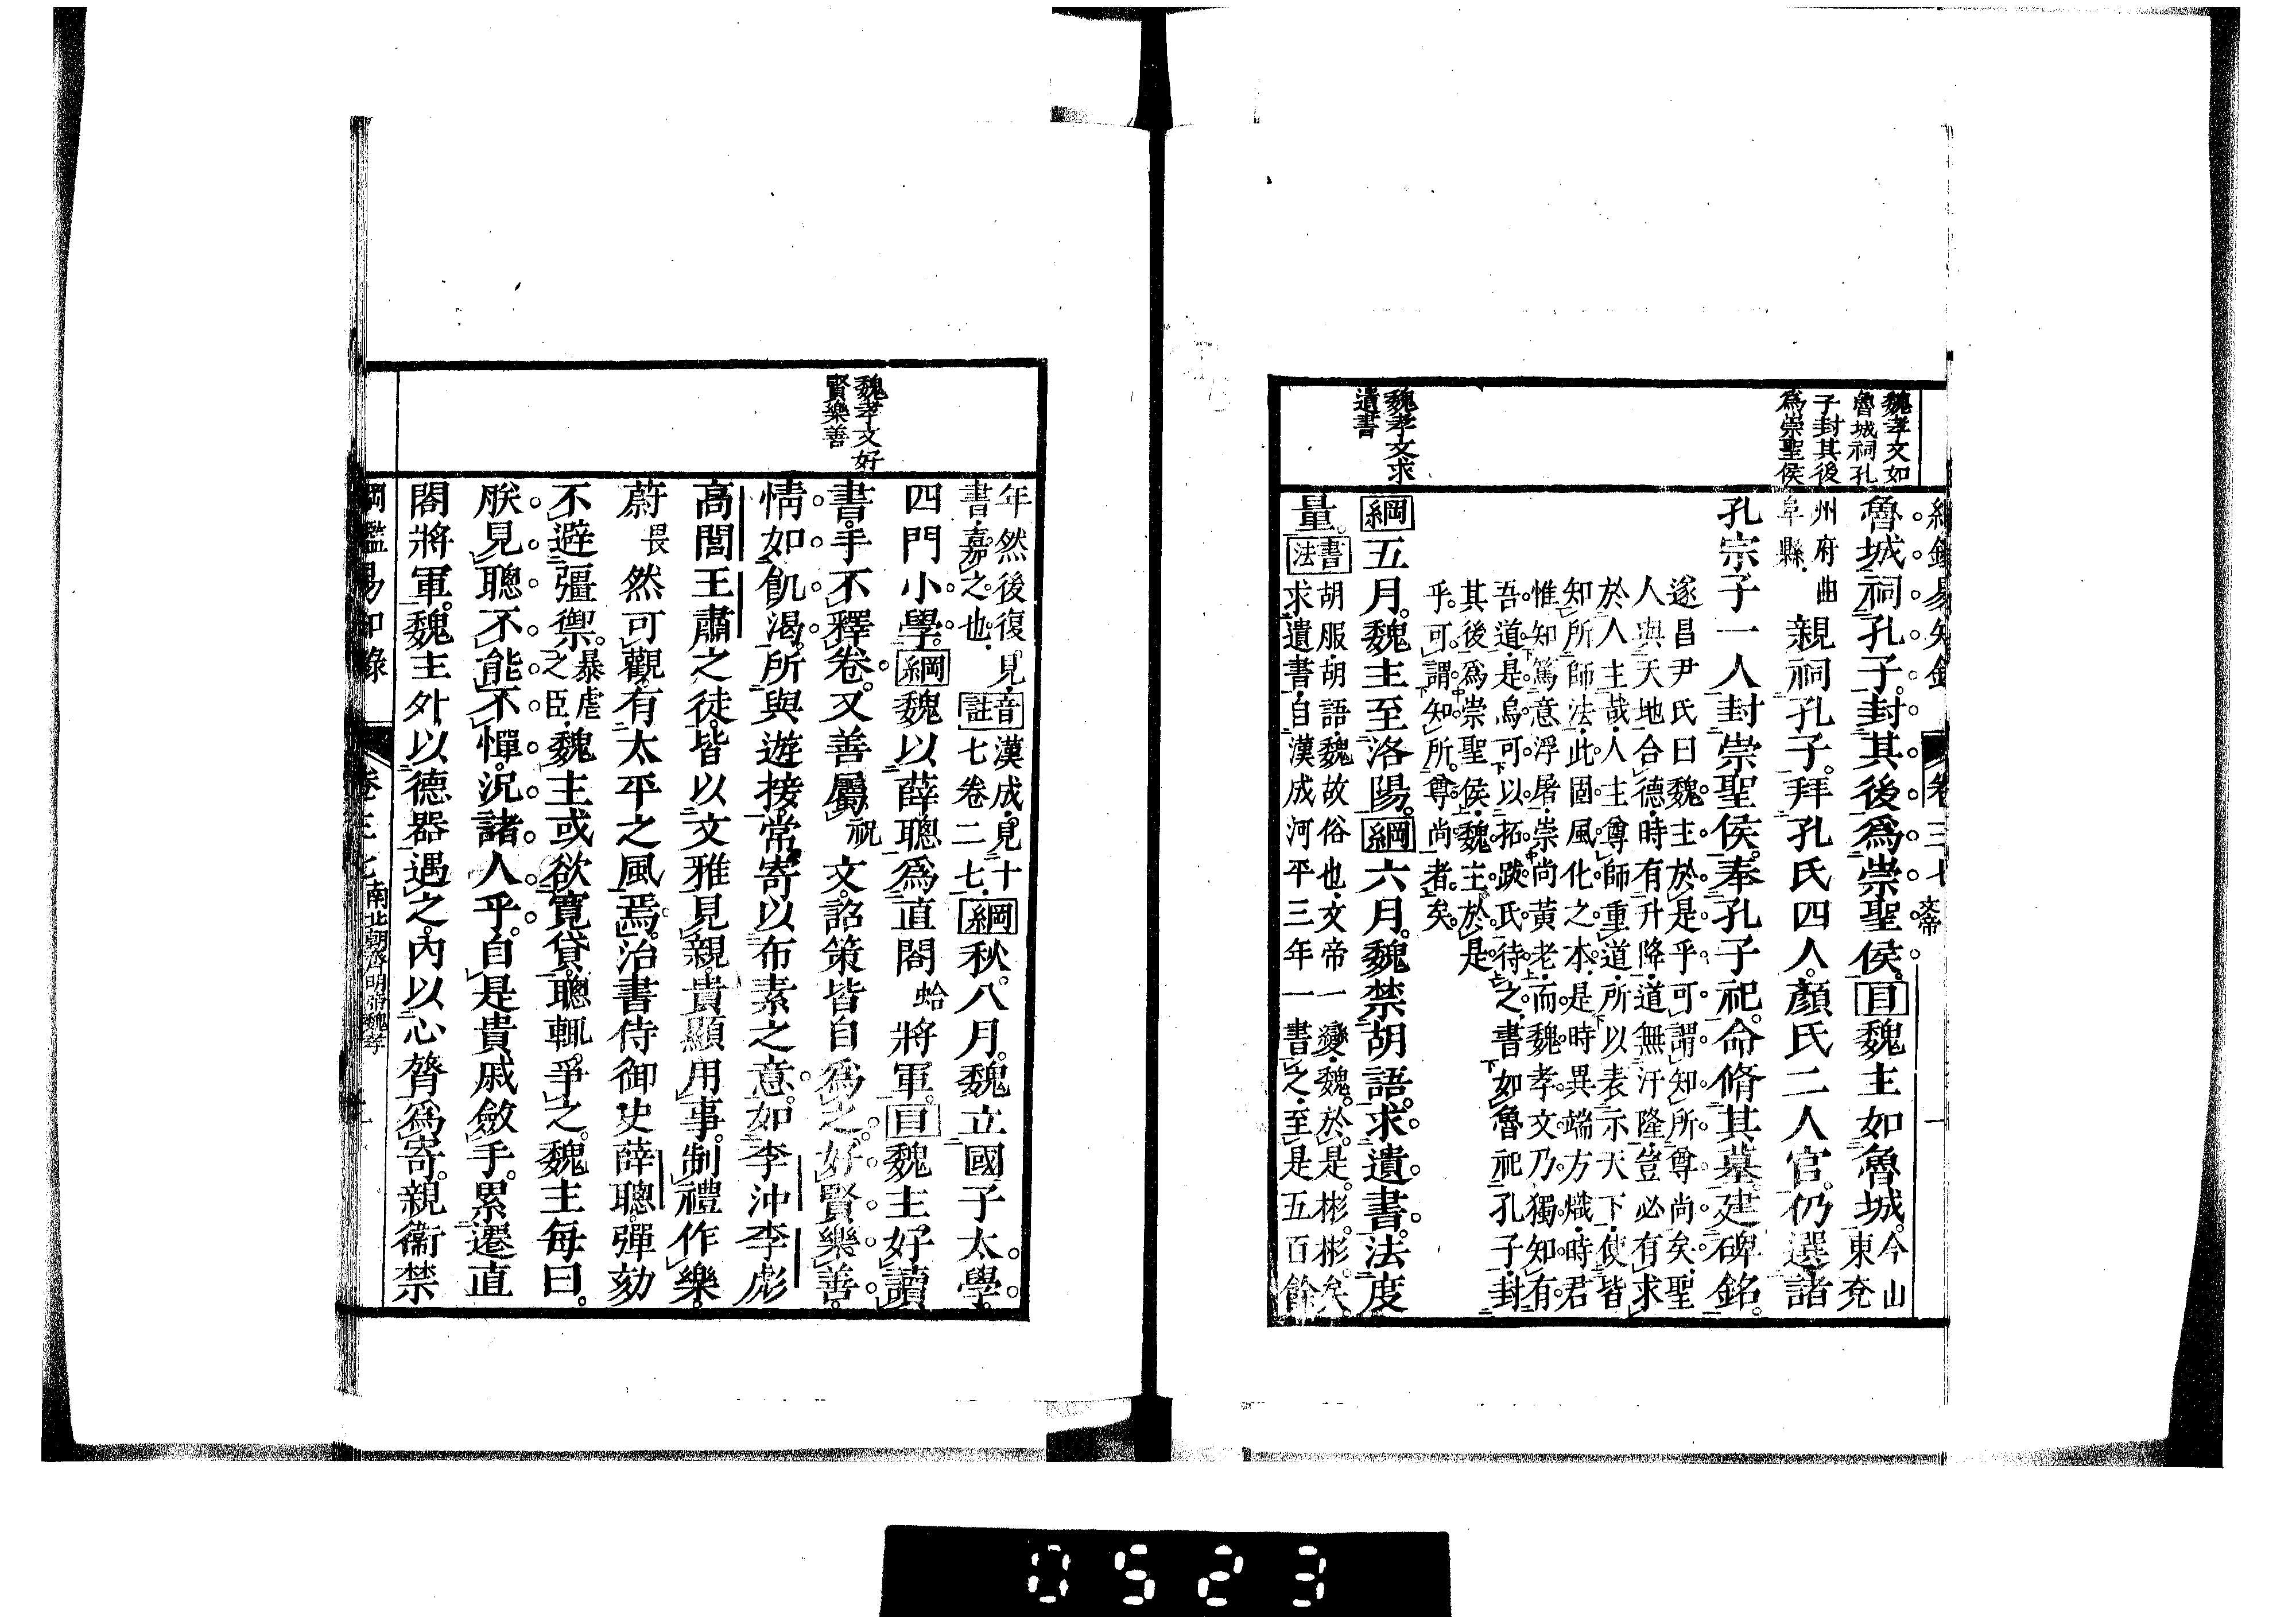 魏孝文如
魯城祠孔
子封其後
爲崇聖侯
魏孝文求
遺書
卷三七 文帝 一
魯城祠孔子。封其後爲崇聖侯。目魏主如魯城。今山東兗
州府曲阜縣。親祠孔子。拜孔氏四人。顏氏二人官。仍選諸
孔宗子一人封崇聖侯。奉孔子祀。命脩其墓。建碑銘。
遂昌尹氏曰魏主於是乎可謂知所尊尚矣聖
人與天地合德時有升降道無汙隆豈必有求
於人主哉人主尊師重道所以表示天下使皆
知所師法此固風化之本是時異端方熾時君
惟知篤意浮屠崇尚黃老而魏孝文乃獨知有
吾道是烏可以拓跋氏待之書如魯祀孔子封
其後爲崇聖侯魏主於是
乎可謂知所尊尚者矣
綱五月。魏主至洛陽。綱六月。魏禁胡語。求遺書。法度
量。書法 胡服胡語魏故俗也文帝一變魏於是彬彬矣
求遺書自漢成河平三年一書之至是五百餘
魏孝文好
賢樂善
年然後復見
書嘉之也 音註 漢成見十七卷二七 綱秋。八月。魏立國子太學。
四門小學。綱魏以薛聰爲直閤蛤將軍。目魏主好讀
書。手不釋卷。又善屬祝文。詔策皆自爲之。好賢樂善。
情如飢渴。所與遊接。常寄以布素之意。如李沖李彪
高閭王肅之徒。皆以文雅見親。貴顯用事。制禮作樂。
蔚畏然可觀。有太平之風焉。治書侍御史薛聰。彈劾
不避彊禦。暴虐之臣。魏主或欲寬貸。聰輒爭之。魏主每曰。
朕見聰不能不憚。況諸人乎。自是貴戚斂手。累遷直
閤將軍。魏主外以德器遇之。內以心膂爲寄。親衞禁
綱鑑易知錄 卷三七 南北朝齊明帝魏孝
0523